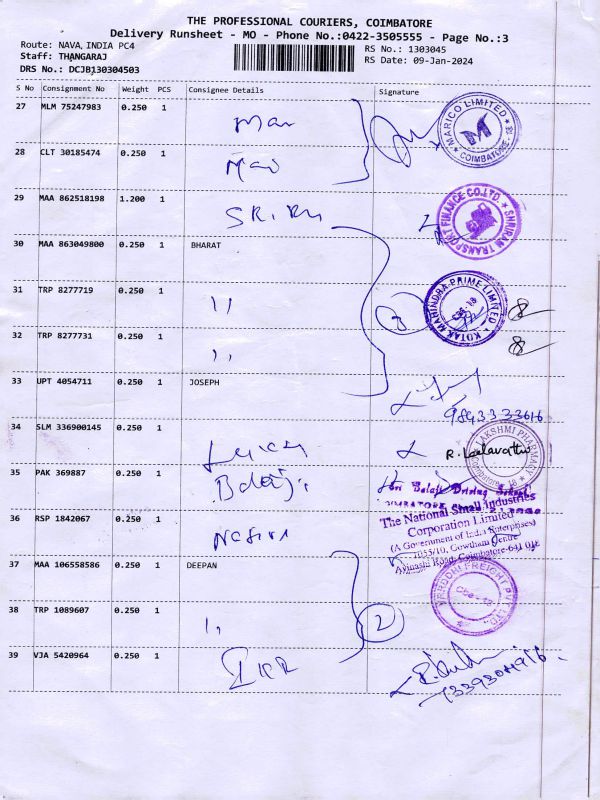 THE PROFESSIONAL COURIERS, COIMBATORE
Delivery Runsheet - MO - Phone No.:0422-3505555 - Page No.:3
Route: NAVA, INDIA PC4 RS No.: 1303045
Staff: THANGARAJ RS Date: 09-Jan-2024
DRS No.: DCJB130304503
S No Consignment No Weight PCS Consignee Details Signature
27 MLM 75247983 0.250 1
MARICO LIMITED
COIMBATORE - 18
28 CLT 30185474 0.250 1
29 MAA 862518198 1.200 1
SHRIRAM TRANSPORT FINANCE CO.LTD.
30 MAA 863049800 0.250 1 BHARAT
31 TRP 8277719 0.250 1 ,,
3
KOTAK MAHINDRA PRIME LIMITED
Cbe-18
32 TRP 8277731 0.250 1 ,,
33 UPT 4054711 0.250 1 JOSEPH
9843333616
34 SLM 336900145 0.250 1
LAKSHMI PHARMACY
R. Leelavathi
35 PAK 369887 0.250 1 Balaji
Sri Balaji Driving School
36 RSP 1842067 0.250 1
The National Small Industries
Corporation Limited
(A Government of India Enterprises)
1055/10, Gowtham Centre
Avinashi Road, Coimbatore-641 018
37 MAA 106558586 0.250 1 DEEPAN
FREIGHT PVT LTD.
Cbe-18
38 TRP 1089607 0.250 1 ,,
2
39 VJA 5420964 0.250 1